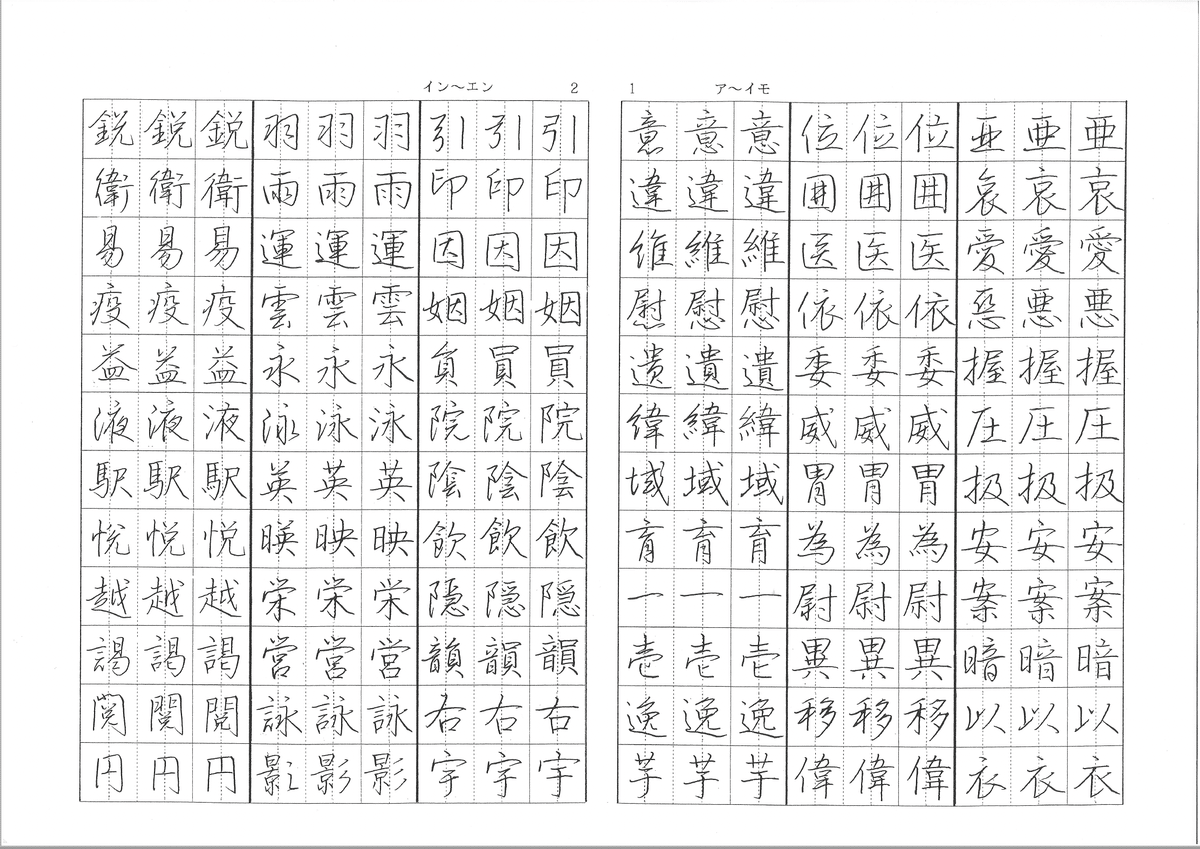 1 ア〜イモ
亜哀愛悪握圧扱安案暗以衣
亜哀愛悪握圧扱安案暗以衣
亜哀愛悪握圧扱安案暗以衣
位囲医依委威胃為尉異移偉
位囲医依委威胃為尉異移偉
位囲医依委威胃為尉異移偉
意違維慰遺緯域育一壱逸芋
意違維慰遺緯域育一壱逸芋
意違維慰遺緯域育一壱逸芋
イン〜エン 2
引印因姻員院陰飲隠韻右宇
引印因姻員院陰飲隠韻右宇
引印因姻員院陰飲隠韻右宇
羽雨運雲永泳英映栄営詠影
羽雨運雲永泳英映栄営詠影
羽雨運雲永泳英映栄営詠影
鋭衛易疫益液駅悦越謁閲円
鋭衛易疫益液駅悦越謁閲円
鋭衛易疫益液駅悦越謁閲円